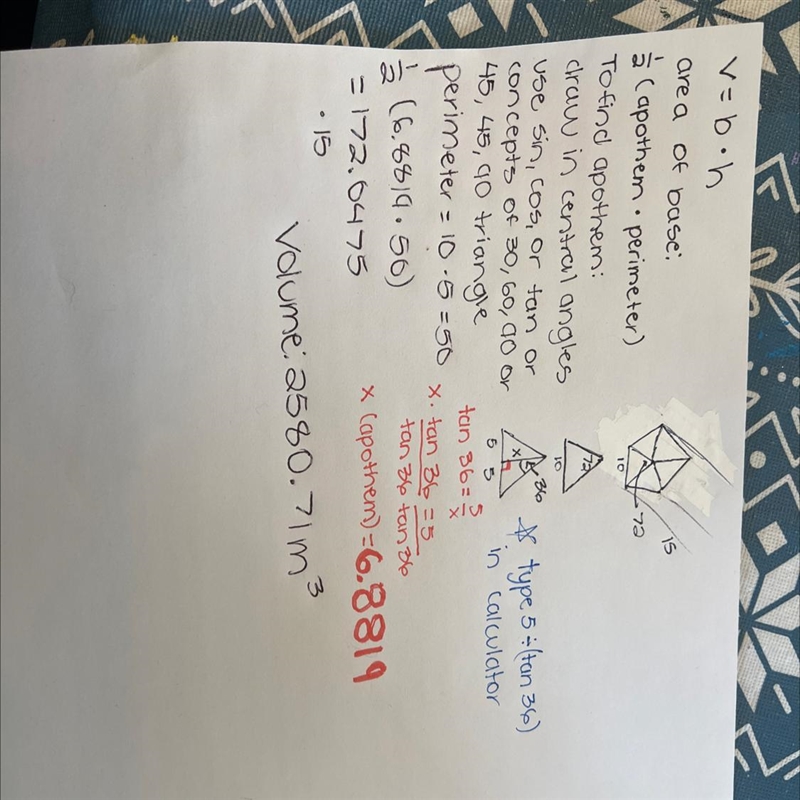 V = b · h
area of base:
1/2 (apothem · perimeter)
To find apothem:
draw in central angles
use sin, cos, or tan or
concepts of 30, 60, 90 or
45, 45, 90 triangle
perimeter = 10 · 5 = 50
1/2 (6.8819 · 50)
= 172.0475
· 15
Volume: 2580.71 m³
15
72
10
72
10
36
x
5 5
☆ type 5 ÷ (tan 36)
in calculator
tan 36 = 5/x
x · tan 36 = 5
tan 36 tan 36
x (apothem) = 6.8819